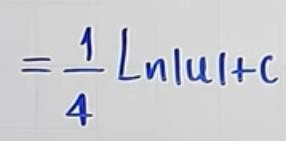 = 1/4 Ln|u|+c